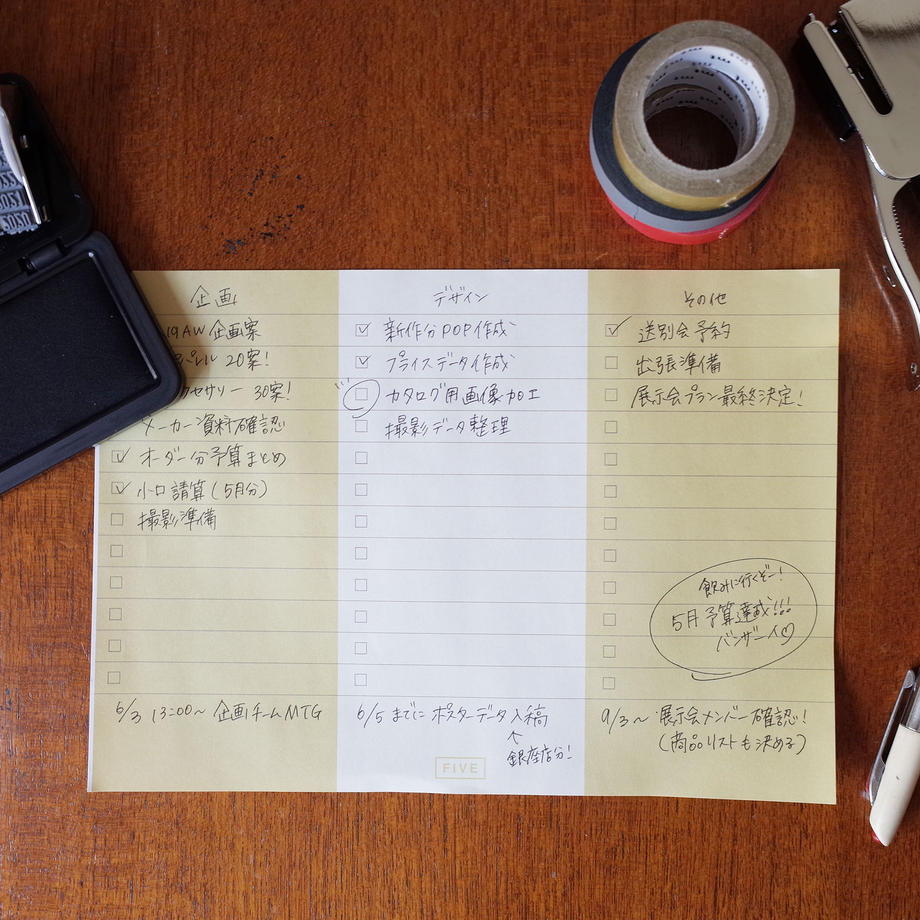 企画
19AW 企画案
パレル 20案!
クセサリー 30案!
メーカー資料確認
オーダー分予算まとめ
小口請算(5月分)
撮影準備
6/3 13:00〜 企画チームMTG
デザイン
新作分POP作成
プライスデータ作成
カタログ用画像加工
撮影データ整理
6/5までに ポスターデータ入稿
↑
銀座店分!
FIVE
その他
送別会予約
出張準備
展示会プラン最終決定!
飲みに行くぞー!
5月予算達成!!!
バンザーイ♡
9/3〜 展示会メンバー確認!
(商品リストも決める)
mt